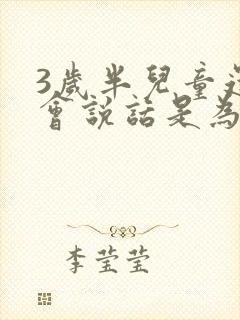 3歲半兒童
會說話是為
李莹莹